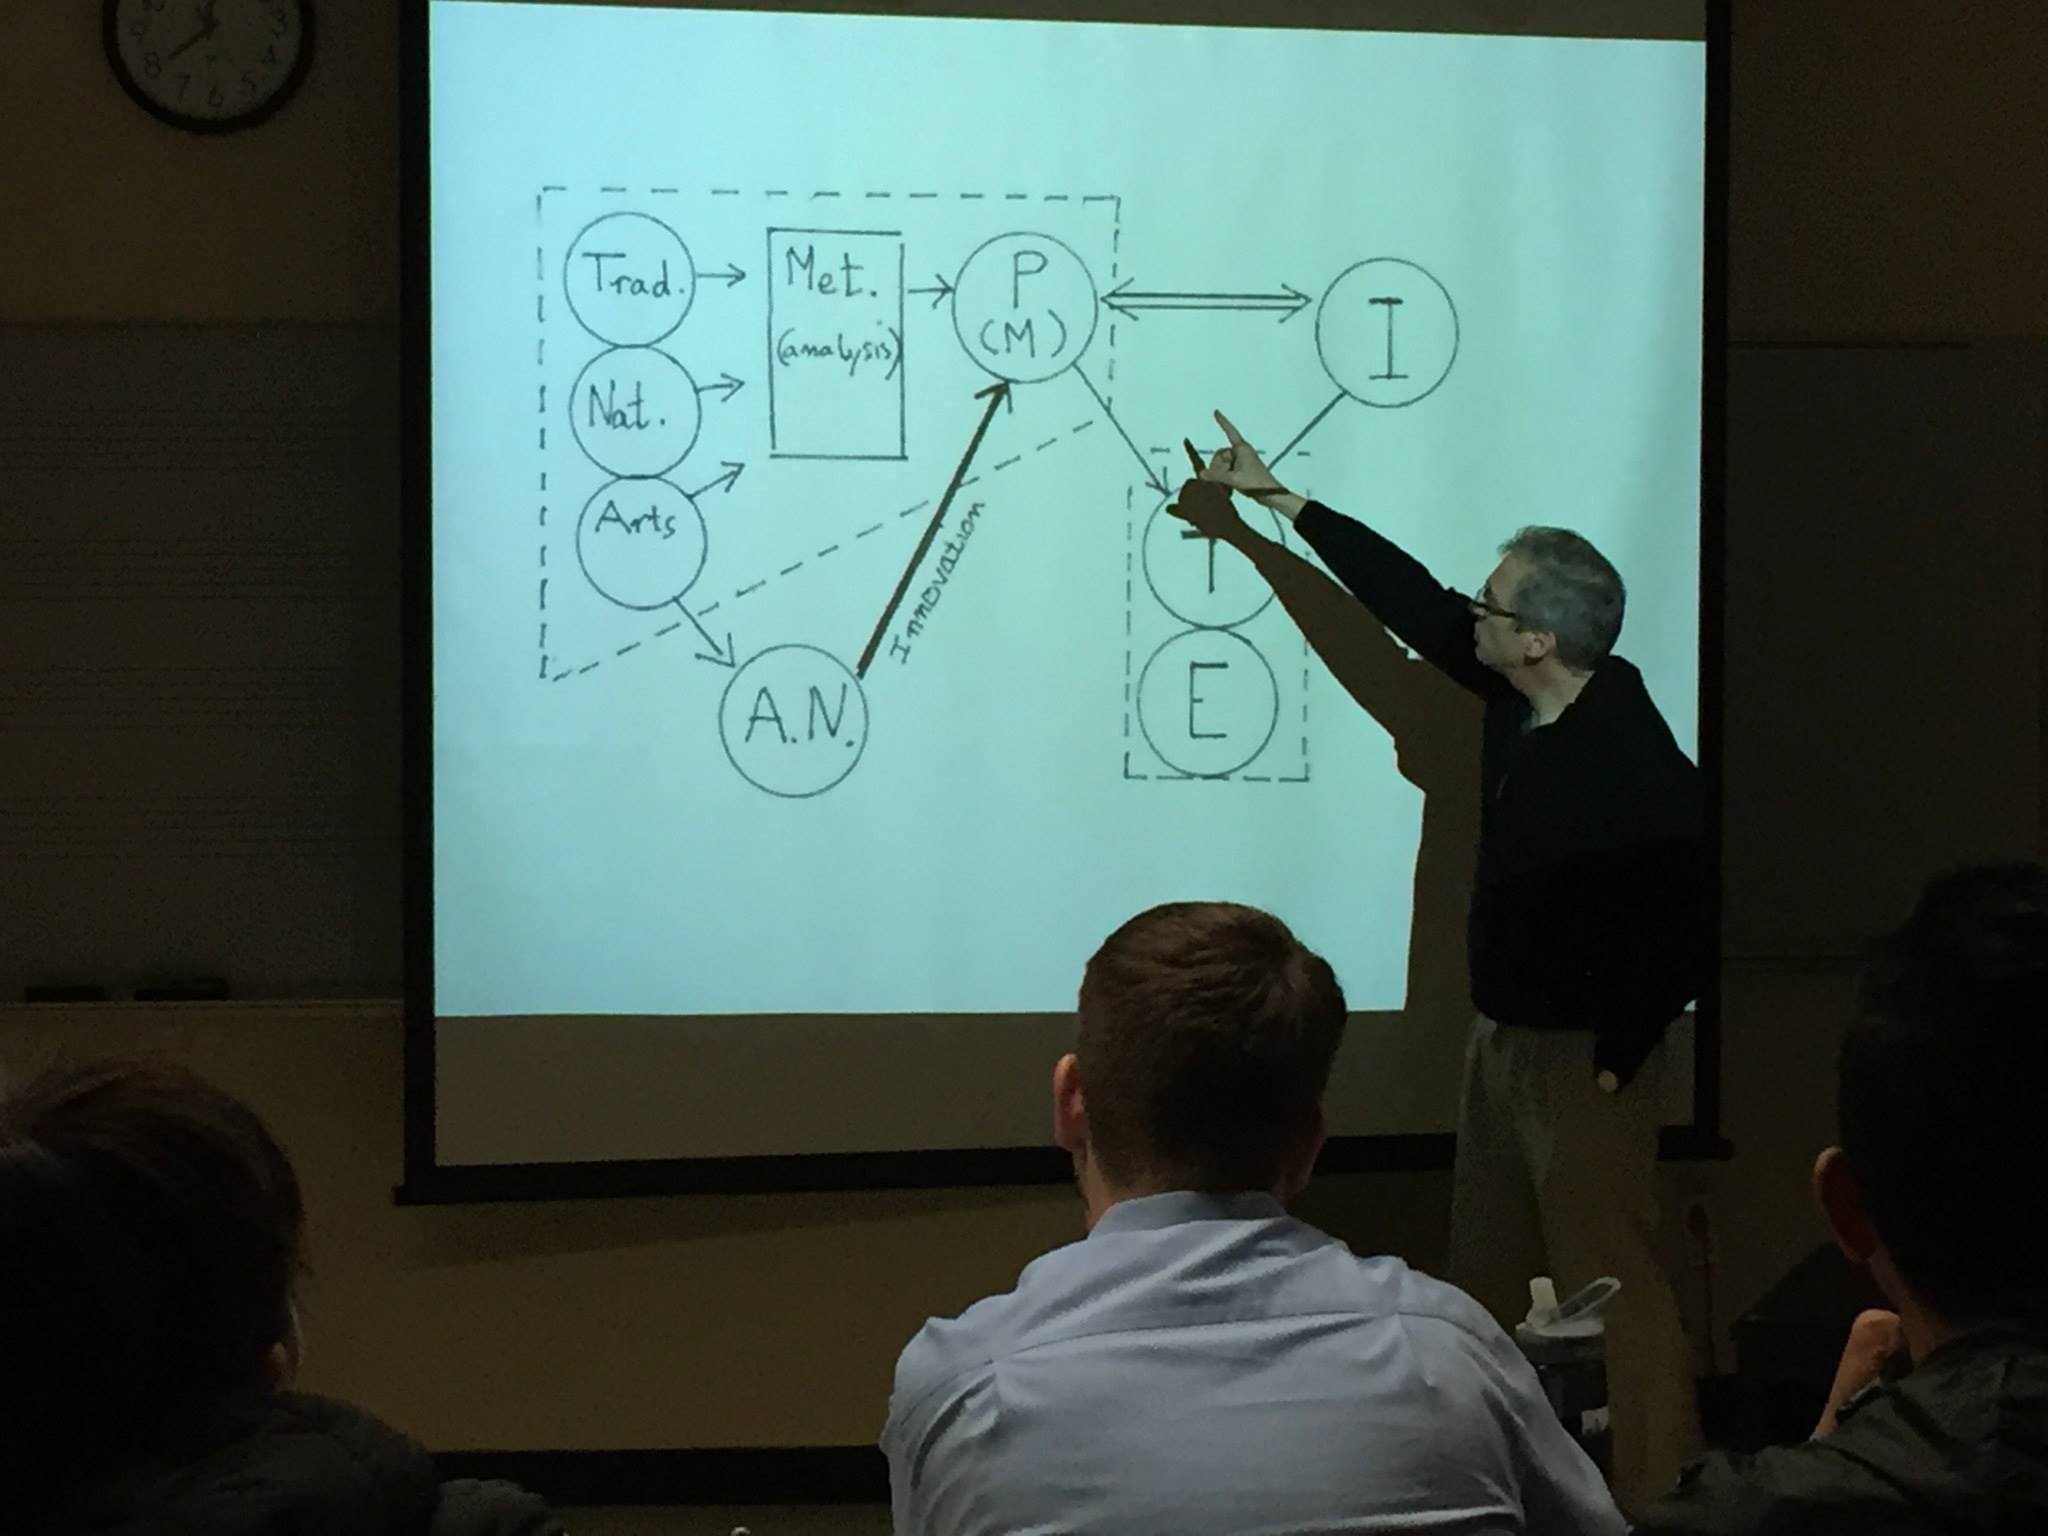 Trad.
Nat.
Arts
Met.
(analysis)
P
(M)
I
A.N.
Innovation
T
E
9
8
7
6
5
4
3